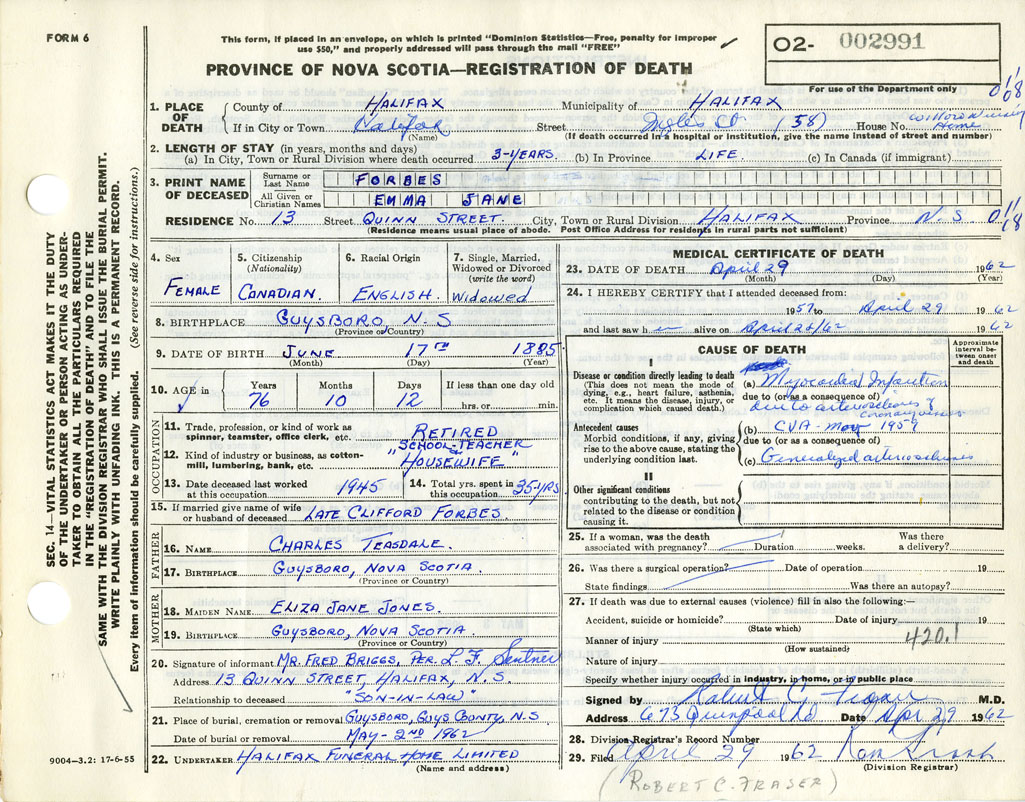 FORM 6
This form, if placed in an envelope, on which is printed "Dominion Statistics—Free, penalty for improper
use $50," and properly addressed will pass through the mail "FREE"
O2- 002991
PROVINCE OF NOVA SCOTIA—REGISTRATION OF DEATH
For use of the Department only
1. PLACE OF DEATH
County of HALIFAX Municipality of HALIFAX
If in City or Town Halifax Street Inglis St. (58) House No. Willow Nursing Home
(Name) (If death occurred in a hospital or institution, give the name instead of street and number)
2. LENGTH OF STAY (in years, months and days)
(a) In City, Town or Rural Division where death occurred 3-YEARS. (b) In Province LIFE. (c) In Canada (if immigrant)
3. PRINT NAME OF DECEASED
Surname or Last Name FORBES
All Given or Christian Names EMMA JANE
RESIDENCE No. 13 Street QUINN STREET. City, Town or Rural Division HALIFAX Province N.S
(Residence means usual place of abode. Post Office Address for residents in rural parts not sufficient)
4. Sex
FEMALE
5. Citizenship (Nationality)
CANADIAN.
6. Racial Origin
ENGLISH.
7. Single, Married, Widowed or Divorced (write the word)
WIDOWED
8. BIRTHPLACE GUYSBORO N.S
(Province or Country)
9. DATE OF BIRTH JUNE 17TH 1885
(Month) (Day) (Year)
10. AGE in
Years Months Days If less than one day old
76 10 12 hrs. or min.
OCCUPATION
11. Trade, profession, or kind of work as spinner, teamster, office clerk, etc. RETIRED
"SCHOOL-TEACHER
12. Kind of industry or business, as cotton-mill, lumbering, bank, etc. HOUSEWIFE"
13. Date deceased last worked at this occupation 1945
14. Total yrs. spent in this occupation 35-YRS
15. If married give name of wife or husband of deceased LATE CLIFFORD FORBES
FATHER
16. NAME CHARLES TEASDALE.
17. BIRTHPLACE GUYSBORO, NOVA SCOTIA.
(Province or Country)
MOTHER
18. MAIDEN NAME ELIZA JANE JONES.
19. BIRTHPLACE GUYSBORO, NOVA SCOTIA
(Province or Country)
20. Signature of informant MR. FRED BRIGGS, PER. L. F. Sentner
Address 13 QUINN STREET, HALIFAX, N.S.
Relationship to deceased "SON-IN-LAW"
21. Place of burial, cremation or removal GUYSBORO, GUYS COUNTY, N.S
Date of burial or removal MAY-2ND 1962
22. UNDERTAKER HALIFAX FUNERAL HOME LIMITED
(Name and address)
9004-3.2: 17-6-55
MEDICAL CERTIFICATE OF DEATH
23. DATE OF DEATH April 29 1962
(Month) (Day) (Year)
24. I HEREBY CERTIFY that I attended deceased from:
1957 to April 29 1962
and last saw h er alive on April 28/62 1962
CAUSE OF DEATH
Approximate interval between onset and death
I
Disease or condition directly leading to death
(This does not mean the mode of dying, e.g., heart failure, asthenia, etc. It means the disease, injury, or complication which caused death.)
(a) Myocardial Infarction
due to (or as a consequence of)
due to arteriosclerosis of
coronary vessels
Antecedent causes
Morbid conditions, if any, giving rise to the above cause, stating the underlying condition last.
(b) CVA - May 1959
due to (or as a consequence of)
(c) Generalized arteriosclerosis
II
Other significant conditions
contributing to the death, but not related to the disease or condition causing it.
25. If a woman, was the death associated with pregnancy? Duration weeks. Was there a delivery?
26. Was there a surgical operation? Date of operation 19
State findings Was there an autopsy?
27. If death was due to external causes (violence) fill in also the following:—
Accident, suicide or homicide? Date of injury 19
(State which)
420.1
Manner of injury
(How sustained)
Nature of injury
Specify whether injury occurred in industry, in home, or in public place
Signed by Robert C. Fraser M.D.
Address 675 Quinpool Rd Date Apr 29 1962
28. Division Registrar's Record Number
29. Filed April 29 1962
(Division Registrar)
(ROBERT C. FRASER)
SEC. 14—VITAL STATISTICS ACT MAKES IT THE DUTY
OF THE UNDERTAKER OR PERSON ACTING AS UNDER-
TAKER TO OBTAIN ALL THE PARTICULARS REQUIRED
IN THE "REGISTRATION OF DEATH" AND TO FILE THE
SAME WITH THE DIVISION REGISTRAR WHO SHALL ISSUE THE BURIAL PERMIT.
WRITE PLAINLY WITH UNFADING INK. THIS IS A PERMANENT RECORD.
Every item of information should be carefully supplied. (See reverse side for instructions.)